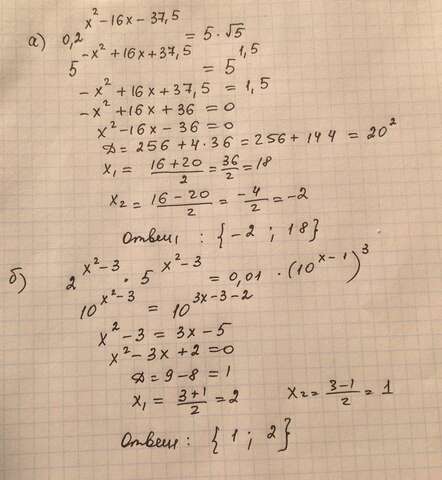 а) 0,2^(x²-16x-37,5) = 5·√5
5^(-x²+16x+37,5) = 5^(1,5)
-x²+16x+37,5 = 1,5
-x²+16x+36 = 0
x²-16x-36 = 0
D = 256+4·36 = 256+144 = 20²
x₁ = (16+20)/2 = 36/2 = 18
x₂ = (16-20)/2 = -4/2 = -2
Ответ: {-2; 18}
б) 2^(x²-3) · 5^(x²-3) = 0,01·(10^(x-1))³
10^(x²-3) = 10^(3x-3-2)
x²-3 = 3x-5
x²-3x+2 = 0
D = 9-8 = 1
x₁ = (3+1)/2 = 2 x₂ = (3-1)/2 = 1
Ответ: {1; 2}